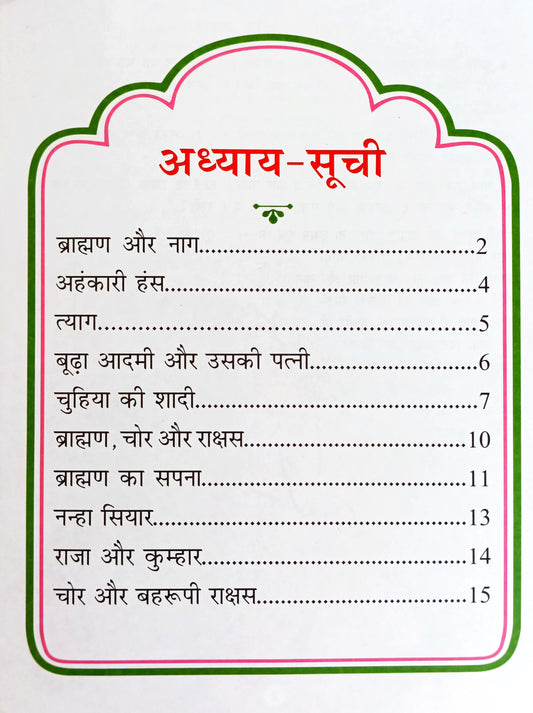 अध्याय-सूची
ब्राह्मण और नाग..............................................2
अहंकारी हंस....................................................4
त्याग...............................................................5
बूढ़ा आदमी और उसकी पत्नी............................6
चुहिया की शादी...............................................7
ब्राह्मण, चोर और राक्षस.....................................10
ब्राह्मण का सपना............................................11
नन्हा सियार....................................................13
राजा और कुम्हार............................................14
चोर और बहरूपी राक्षस...................................15